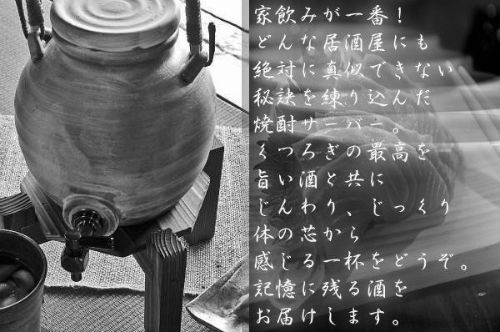 家飲みが一番！
どんな居酒屋にも
絶対に真似できない
秘訣を練り込んだ
焼酎サーバー。
くつろぎの最高を
旨い酒と共に
じんわり、じっくり
体の芯から
感じる一杯をどうぞ。
記憶に残る酒を
お届けします。